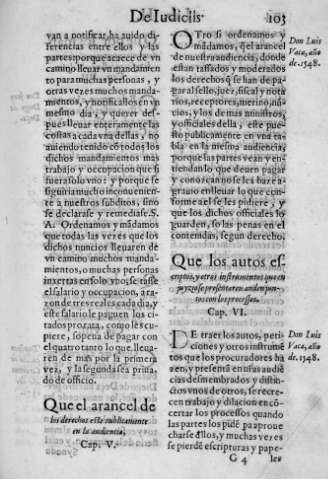 De Iudiciis. 103
van a notificar, ha auido di-
ferencias entre ellos y las
partes: porque acaece de vn
camino lleuar vn mandamiẽ-
to para muchas personas, y
otras vezes muchos manda-
mientos, y notificallos en vn
mesmo dia, y querer des-
pues lleuar enteramente las
costas, cada vna dellas, no
auiendo tenido cõ todos los
dichos mandamientos mas
trabajo y occupacion que si
fuera solo vno: y porque se
siguiria mucho inconuenien-
te a nuestros subditos, sino
se declarase y remediase. S.
A. Ordenamos y mãdamos
que todas las vezes que los
dichos nuncios lleuaren de
vn camino muchos manda-
mientos, o muchas personas
insertas en solo vno, se tasse
el salario y occupacion, a ra-
zon de tres reales cada dia, y
este salario le paguen los ci-
tados prorrata, como les cu-
piere, so pena de pagar con
el quatro tanto lo que lleua-
ren de mas por la primera
vez, y la segunda sea priua-
do de officio.
Que el arancel de
los derechos este publicamente
en la audiencia,
Cap. V.
OTro si ordenamos y
mãdamos, q̃ el arancel
de nuestra audiencia, donde
estan tassados y moderados
los derechos q̃ se han de pa-
gar al sello, juez, fiscal y nota
rios, receptores, merino, nũ-
cios, y los de mas ministros,
y officiales della, este pu-
esto publicamente en vna ta-
bla en la mesma audiencia,
porque las partes vean y en-
tiendan lo que deuen pagar
y conozcan no se les haze a-
grauio en lleuar lo que con-
forme a el se les pidiere, y
que los dichos officiales lo
guarden, so las penas en el
contenidas, segun derecho.
Don Luis
Vaca, año
de. 1548.
Que los autos es-
criptos, y otros instrumentos que en
juyzio se presentaren anden jun-
tos con los processos.
Cap. VI.
DE traer los autos, peti-
ciones y otros instrumẽ
tos que los procuradores ha
zen, y presentã en las audiẽ
cias desmembrados y distin-
ctos vnos de otros, se recre-
cen trabajo y dilacion en cõ-
certar los processos quando
las partes los pidẽ para aproue
charse dellos, y muchas vezes
se pierdẽ escripturas y pape-
Don Luis
Vaca, año
de. 1548.
G 4 les